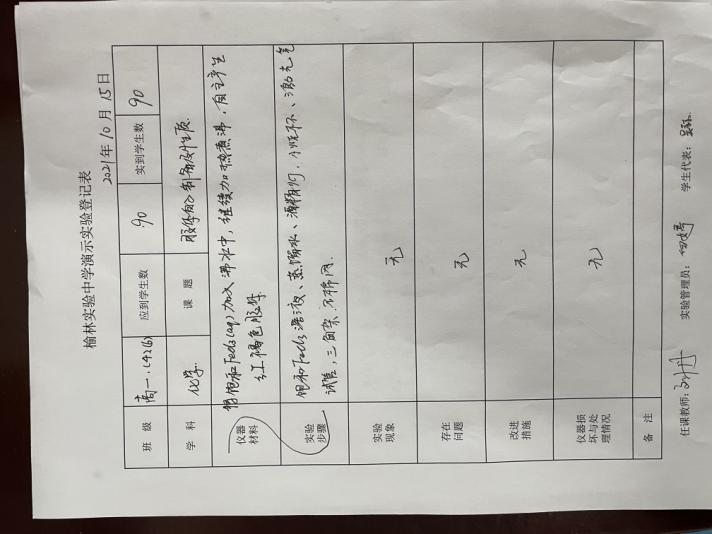 榆林实验中学演示实验登记表
2021年10月15日
班级 高一.(4.2.6) 应到学生数 90 实到学生数 90
学科 化学 课题 胶体的制备及性质
仪器材料 将饱和FeCl3(aq)加入沸水中,继续加热煮沸,自主产生
红褐色胶体.
实验步骤 饱和FeCl3溶液、蒸馏水、酒精灯、小烧杯、激光笔
试管,三角架,石棉网.
实验现象 无
存在问题 无
改进措施 无
仪器损坏与处理情况 无
备注
任课教师: 实验管理员: 学生代表: